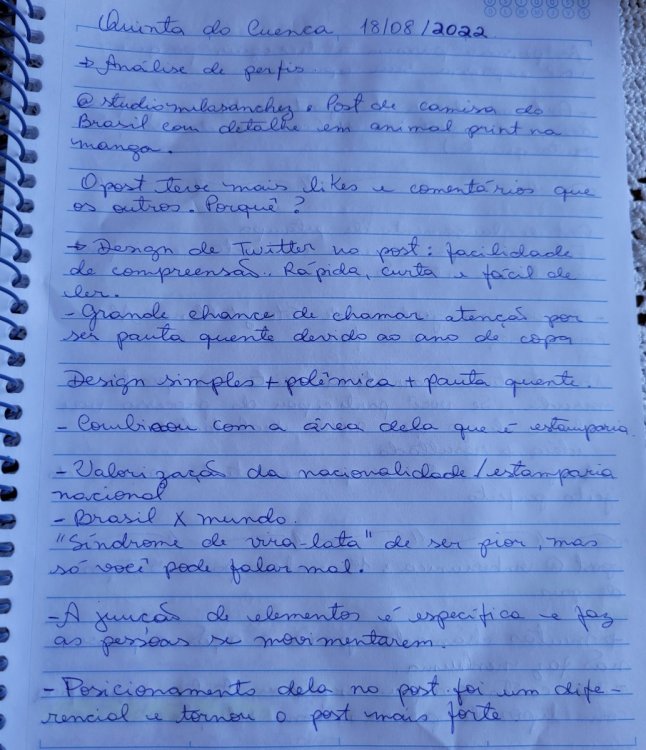 Quinta do Cuenca, 18/08/2022
→ Análise de perfis.
@studiomilasanchez. Post de camisa do
Brasil com detalhe em animal print na
manga.
O post teve mais likes e comentários que
os outros. Porquê?
→ Design de Twitter no post: facilidade
de compreensão. Rápida, curta e fácil de
ler.
- Grande chance de chamar atenção por
ser pauta quente devido ao ano de copa
Design simples + polêmica + pauta quente.
- Combinou com a área dela que é estamparia.
- Valorização da nacionalidade/estamparia
nacional
- Brasil X mundo.
"Síndrome de vira-lata" de ser pior, mas
só você pode falar mal.
- A junção de elementos é específica e faz
as pessoas se movimentarem.
- Posicionamento dela no post foi um dife-
rencial e tornou o post mais forte